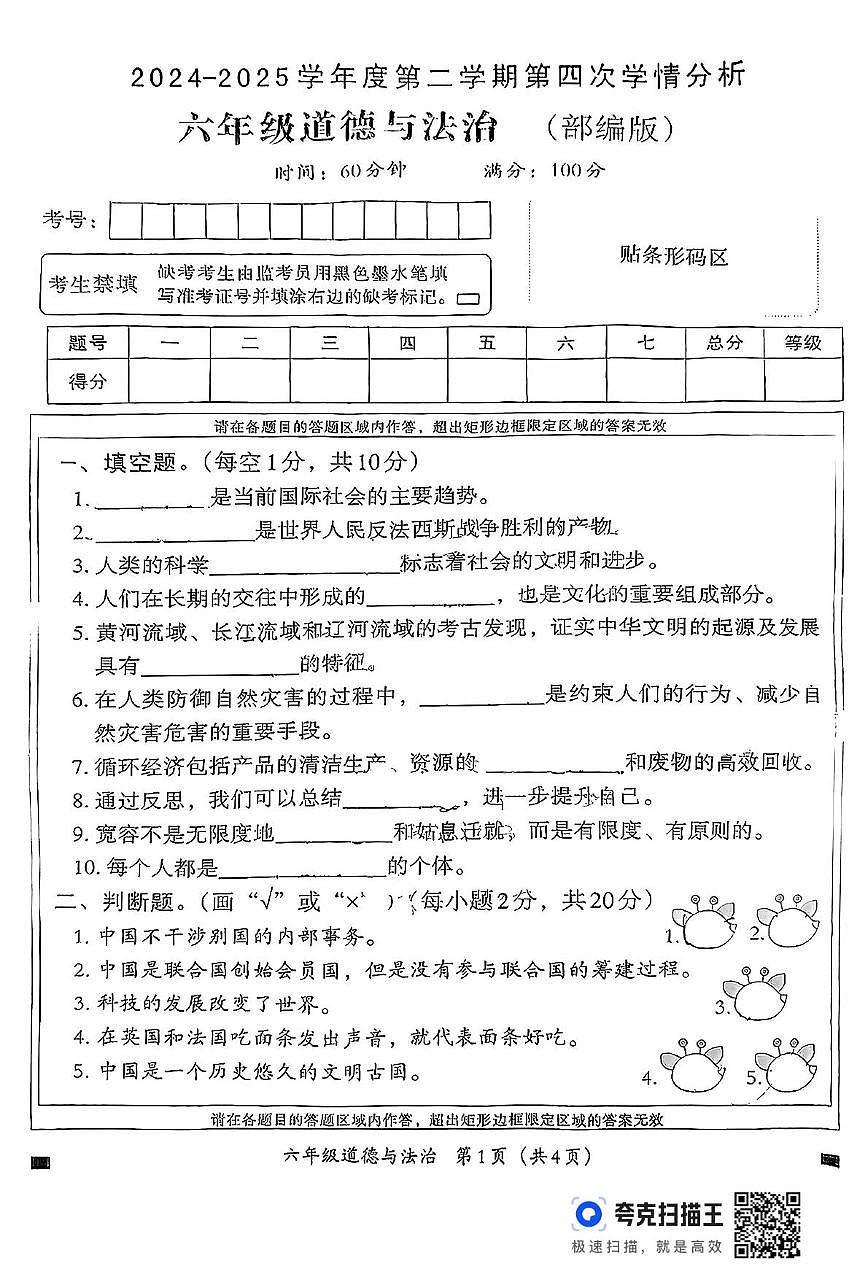 2024-2025学年度第二学期第四次学情分析
六年级道德与法治 (部编版)
时间：60分钟 满分：100分
考号：
贴条形码区
考生禁填 缺考考生由监考员用黑色墨水笔填
写准考证号并填涂右边的缺考标记。
题号 一 二 三 四 五 六 七 总分 等级
得分
请在各题目的答题区域内作答，超出矩形边框限定区域的答案无效
一、填空题。（每空1分，共10分）
1.__________是当前国际社会的主要趋势。
2.______________是世界人民反法西斯战争胜利的产物。
3.人类的科学________________标志着社会的文明和进步。
4.人们在长期的交往中形成的___________，也是文化的重要组成部分。
5.黄河流域、长江流域和辽河流域的考古发现，证实中华文明的起源及发展
具有______________的特征。
6.在人类防御自然灾害的过程中，___________是约束人们的行为、减少自
然灾害危害的重要手段。
7.循环经济包括产品的清洁生产、资源的____________和废物的高效回收。
8.通过反思，我们可以总结__________，进一步提升自己。
9.宽容不是无限度地__________和姑息迁就，而是有限度、有原则的。
10.每个人都是______________的个体。
二、判断题。（画“√”或“×”）（每小题2分，共20分）
1.中国不干涉别国的内部事务。
1. 2.
2.中国是联合国创始会员国，但是没有参与联合国的筹建过程。
3.科技的发展改变了世界。
3.
4.在英国和法国吃面条发出声音，就代表面条好吃。
5.中国是一个历史悠久的文明古国。
4. 5.
请在各题目的答题区域内作答，超出矩形边框限定区域的答案无效
六年级道德与法治 第1页（共4页）
夸克扫描王
极速扫描，就是高效